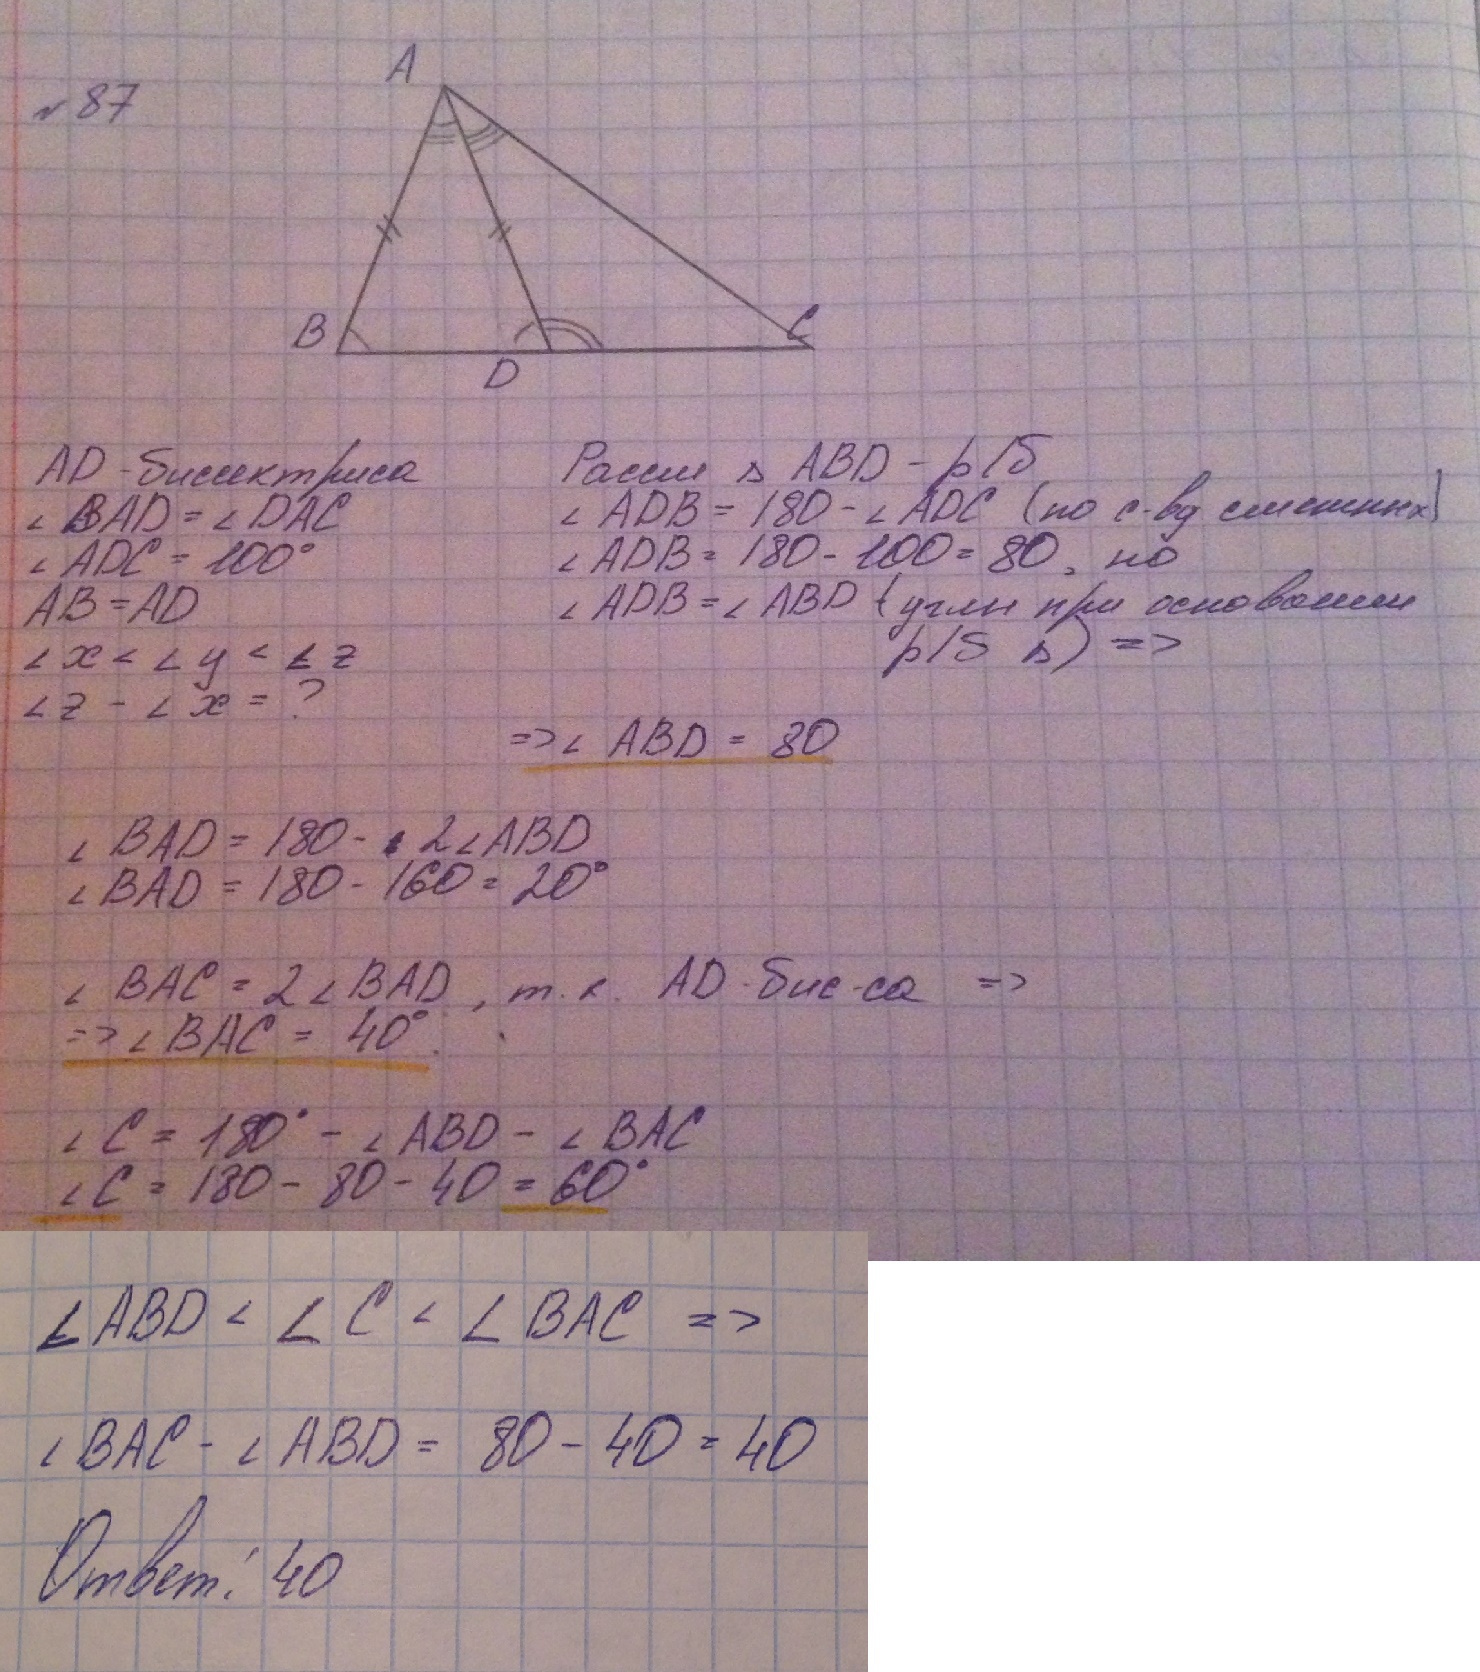 №87
A
B
D
C
AD - биссектриса
∠BAD = ∠DAC
∠ADC = 100°
AB = AD
∠x < ∠y < ∠z
∠z - ∠x = ?
Рассм ∆ ABD - р/б
∠ADB = 180 - ∠ADC (по с-ву смежных)
∠ADB = 180 - 100 = 80, но
∠ADB = ∠ABD (углы при основании
р/б ∆) =>
=> ∠ABD = 80
∠BAD = 180 - 2∠ABD
∠BAD = 180 - 160 = 20°
∠BAC = 2∠BAD, т.к. AD - бис-са =>
=> ∠BAC = 40°.
∠C = 180° - ∠ABD - ∠BAC
∠C = 180 - 80 - 40 = 60°
∠ABD < ∠C < ∠BAC =>
∠BAC - ∠ABD = 80 - 40 = 40
Ответ: 40